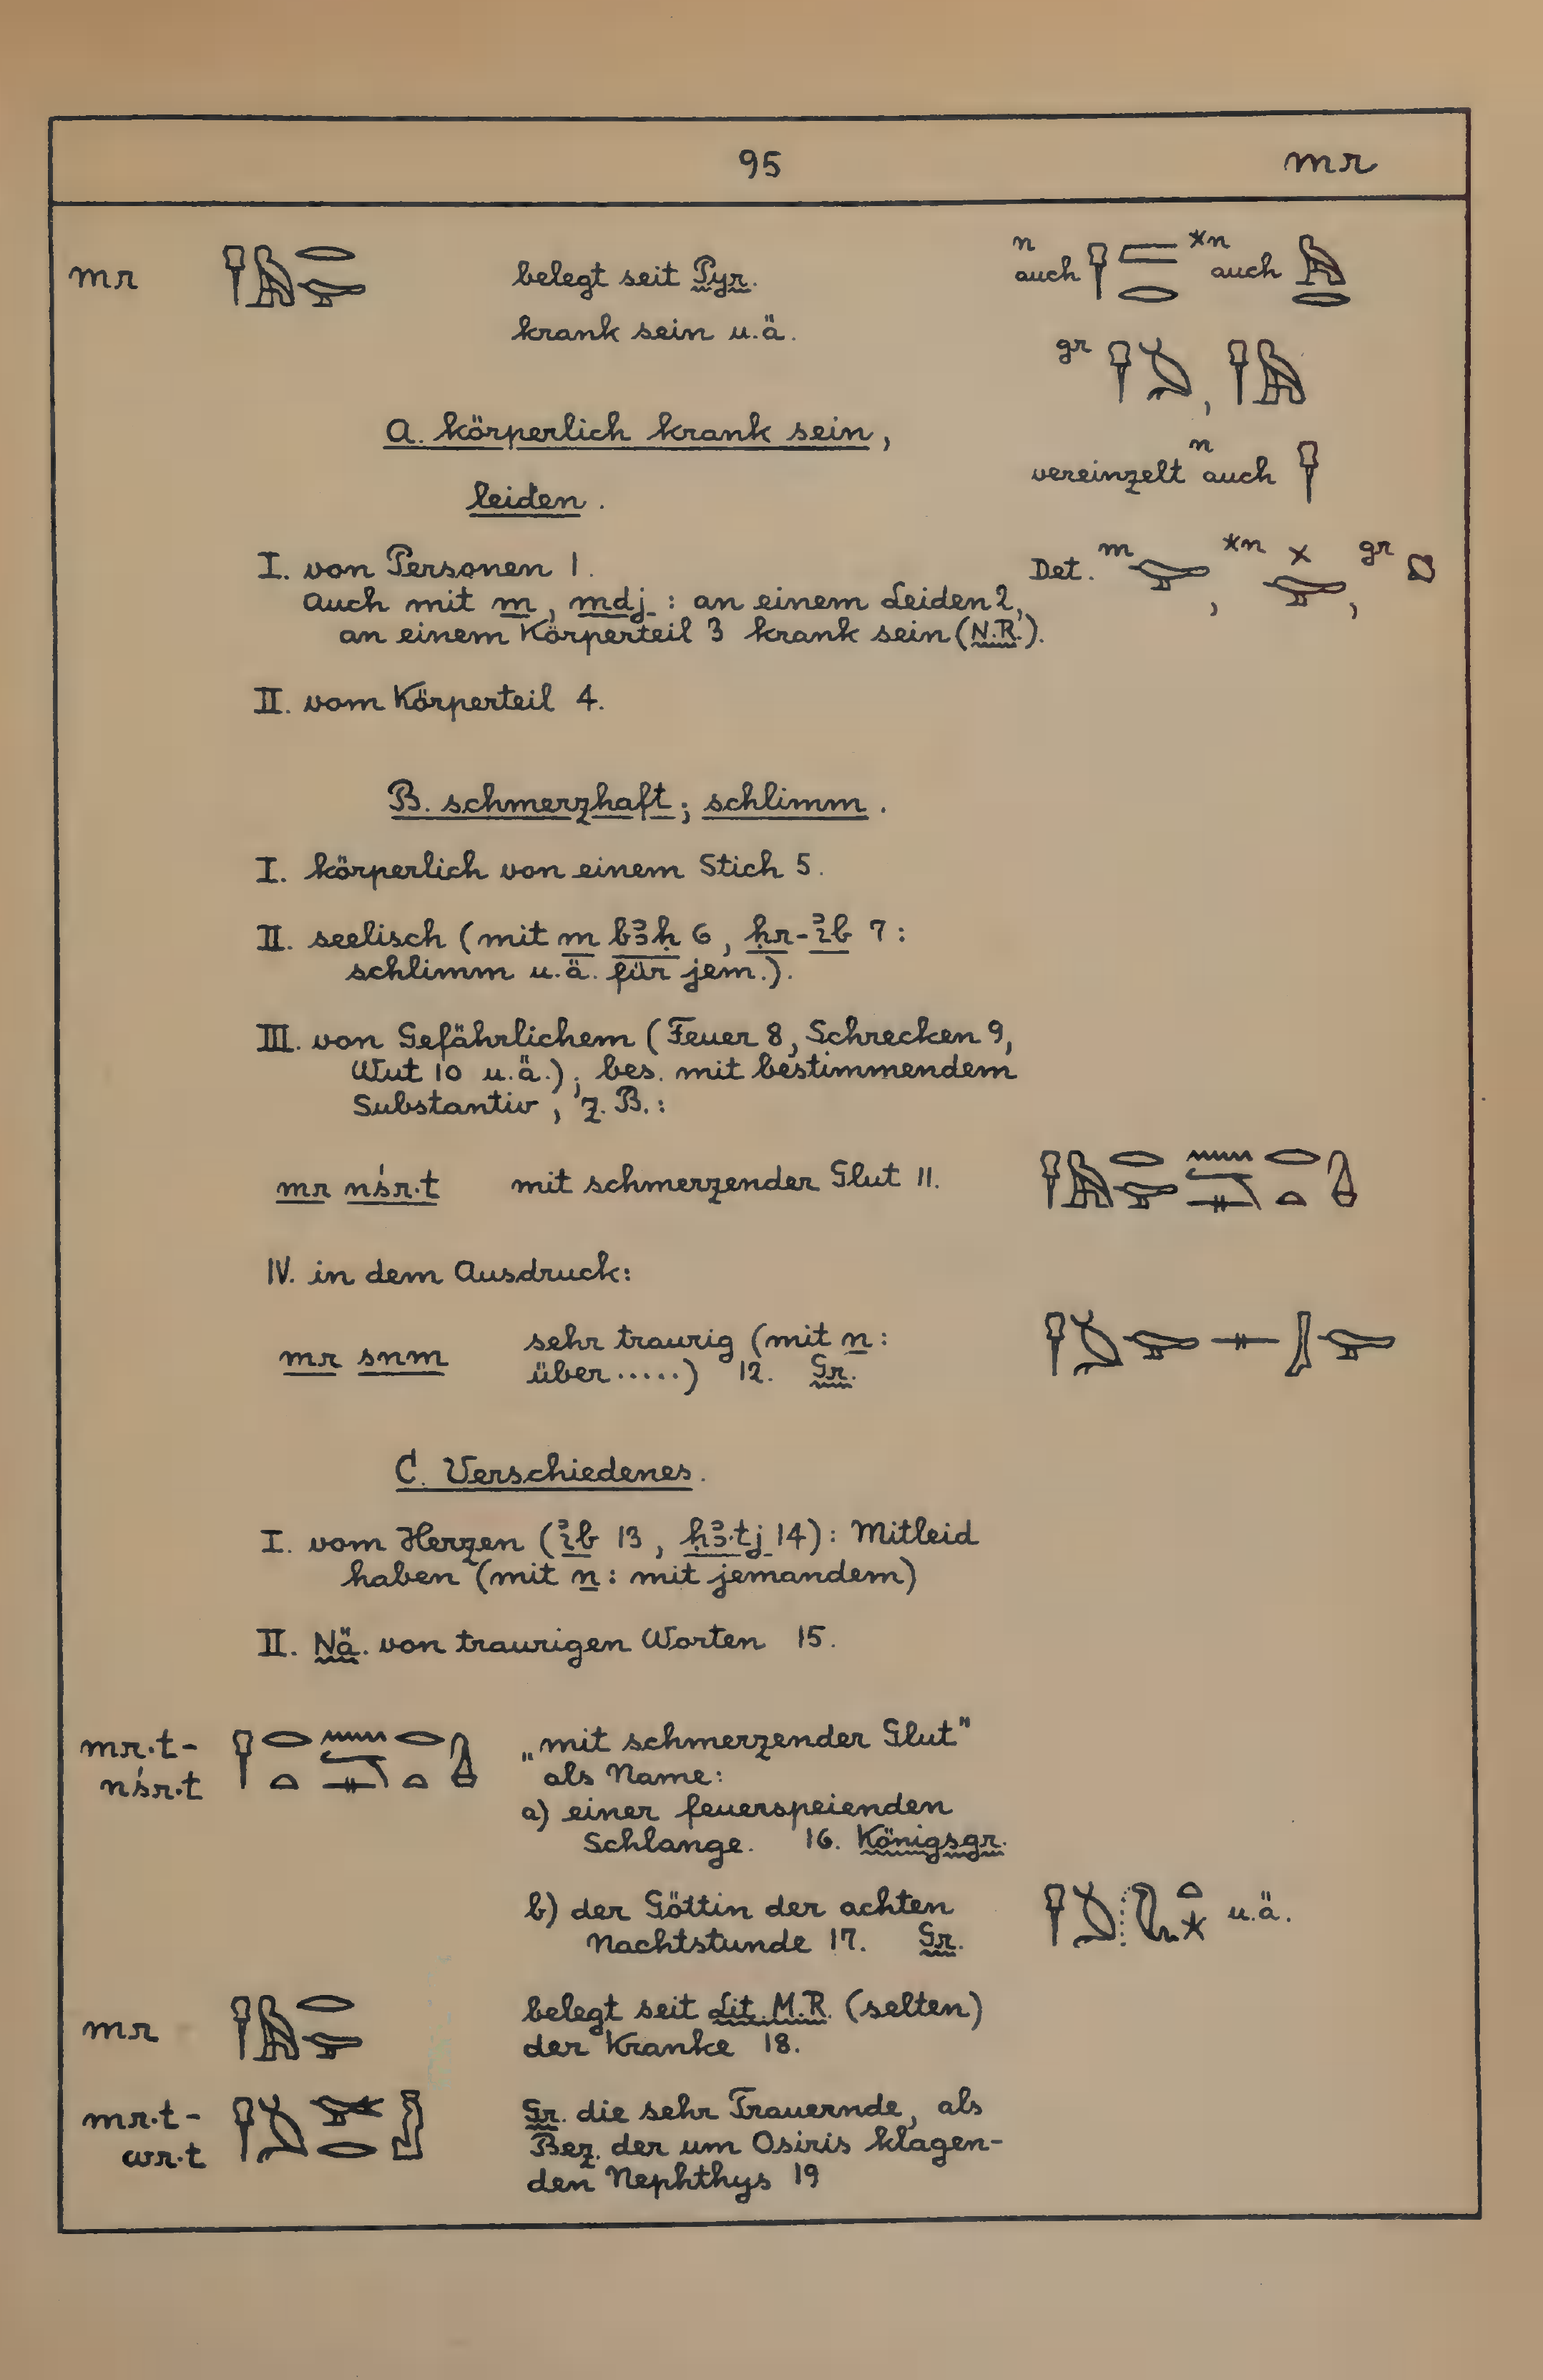 95 mr
mr belegt seit Pyr. n auch *n auch
krank sein u.ä. gr ,
A. körperlich krank sein,
leiden.
vereinzelt n auch
I. von Personen 1. Det. m , *n × , gr
Auch mit m, mdj : an einem Leiden 2,
an einem Körperteil 3 krank sein (N.R.).
II. vom Körperteil 4.
B. schmerzhaft; schlimm.
I. körperlich von einem Stich 5.
II. seelisch (mit m bꜣḥ 6, ḥr-ꜣib 7:
schlimm u.ä. für jem.).
III. von Gefährlichem (Feuer 8, Schrecken 9,
Wut 10 u.ä.); bes. mit bestimmendem
Substantiv, z.B.:
mr nśr·t mit schmerzender Glut 11.
IV. in dem Ausdruck:
mr snm sehr traurig (mit n:
über .....) 12. Gr.
C. Verschiedenes.
I. vom Herzen (ꜣib 13, ḥꜣ·tj 14): Mitleid
haben (mit n: mit jemandem)
II. Nä. von traurigen Worten 15.
mr·t- „mit schmerzender Glut"
nśr·t als Name:
a) einer feuerspeienden
Schlange. 16. Königsgr.
b) der Göttin der achten u.ä.
Nachtstunde 17. Gr.
mr belegt seit Lit. M.R. (selten)
der Kranke 18.
mr·t- Gr. die sehr Trauernde, als
wr·t Bez. der um Osiris klagen-
den Nephthys 19